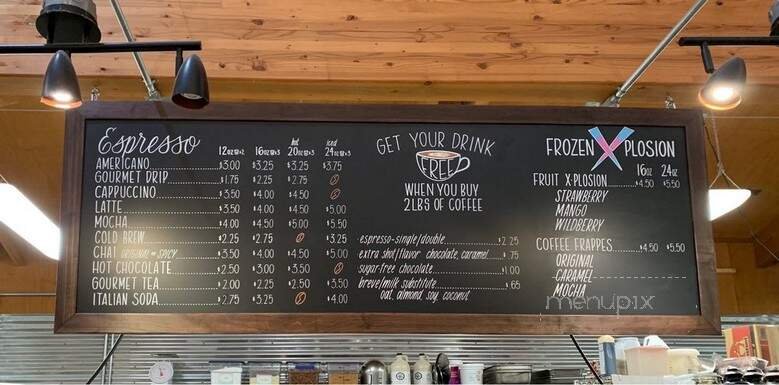 Espresso
12oz 16oz hot 20oz iced 24oz
AMERICANO $3.00 $3.25 $3.25 $3.75
GOURMET DRIP $1.75 $2.25 $2.75
CAPPUCCINO $3.50 $4.00 $4.50
LATTE $3.50 $4.00 $4.50 $5.00
MOCHA $4.00 $4.50 $5.00 $5.50
COLD BREW $2.25 $2.75 $3.25
CHAI ORIGINAL or SPICY $3.50 $4.00 $4.50 $5.00
HOT CHOCOLATE $2.50 $3.00 $3.50
GOURMET TEA $2.00 $2.25 $2.50 $3.50
ITALIAN SODA $2.75 $3.25 $4.00
GET YOUR DRINK
FREE
WHEN YOU BUY
2LBS OF COFFEE
espresso-single/double $2.25
extra shot/flavor chocolate, caramel $.75
sugar-free chocolate $1.00
breve/milk substitute $.65
oat, almond, soy, coconut
FROZEN X PLOSION
16oz 24oz
FRUIT X-PLOSION $4.50 $5.50
STRAWBERRY
MANGO
WILDBERRY
COFFEE FRAPPES $4.50 $5.50
ORIGINAL
CARAMEL
MOCHA
menupix